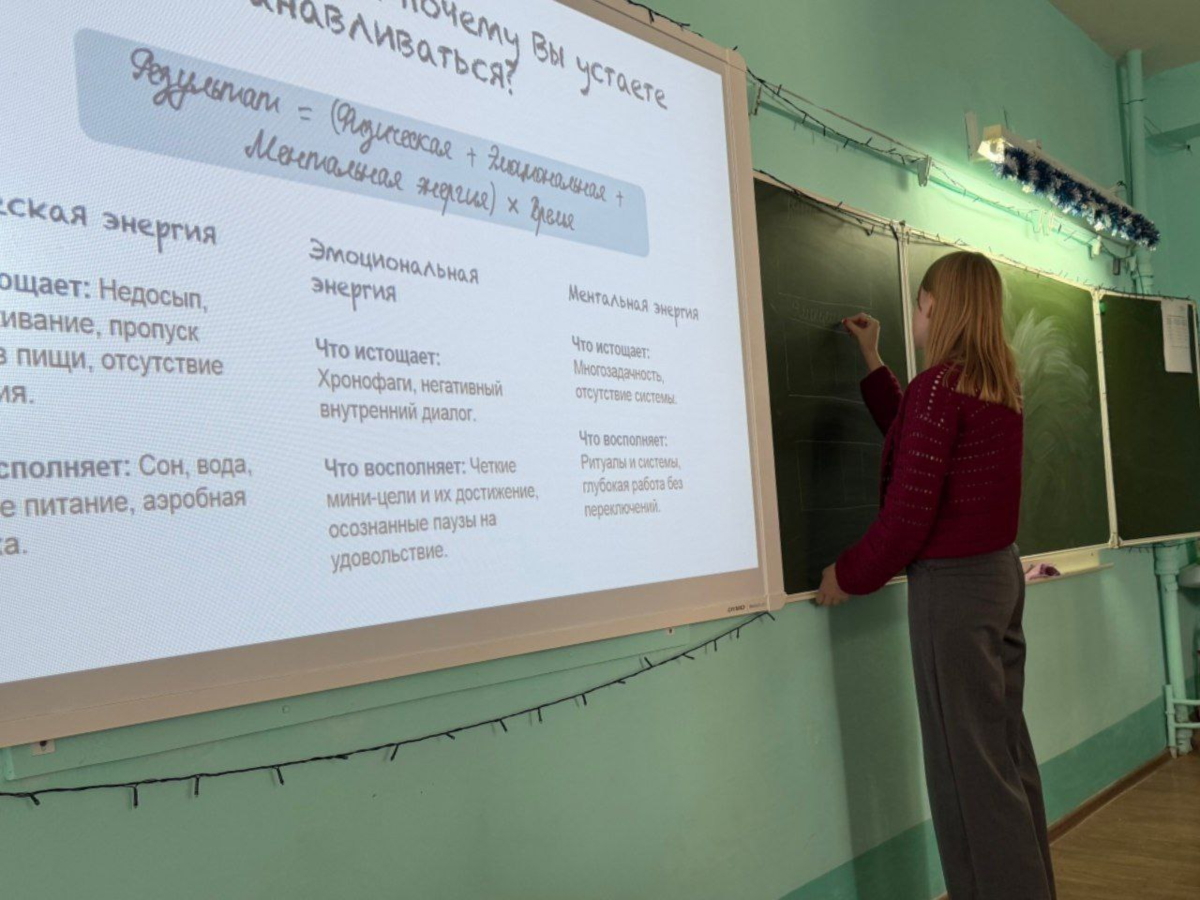 почему вы устаете
анавливаться?
Результат = (Физическая + Эмоциональная +
Ментальная энергия) × Время
еская энергия
ощает: Недосып,
ивание, пропуск
в пищи, отсутствие
ия.
сполняет: Сон, вода,
е питание, аэробная
ка.
Эмоциональная
энергия
Что истощает:
Хронофаги, негативный
внутренний диалог.
Что восполняет: Четкие
мини-цели и их достижение,
осознанные паузы на
удовольствие.
Ментальная энергия
Что истощает:
Многозадачность,
отсутствие системы.
Что восполняет:
Ритуалы и системы,
глубокая работа без
переключений.